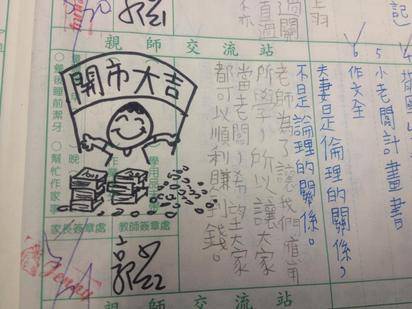 記)
上羽
過關
親師交流站
5.小老闆計畫書
6.作文全
夫妻是倫理的關係,
不是論理的關係。
老師為了讓我們應用
所學,所以讓大家
當老闆,希望大家
都可以順利賺到錢。
開市大吉
餐後睡前潔牙
幫忙作家事
教師簽章處
家長簽章處
親師交流站